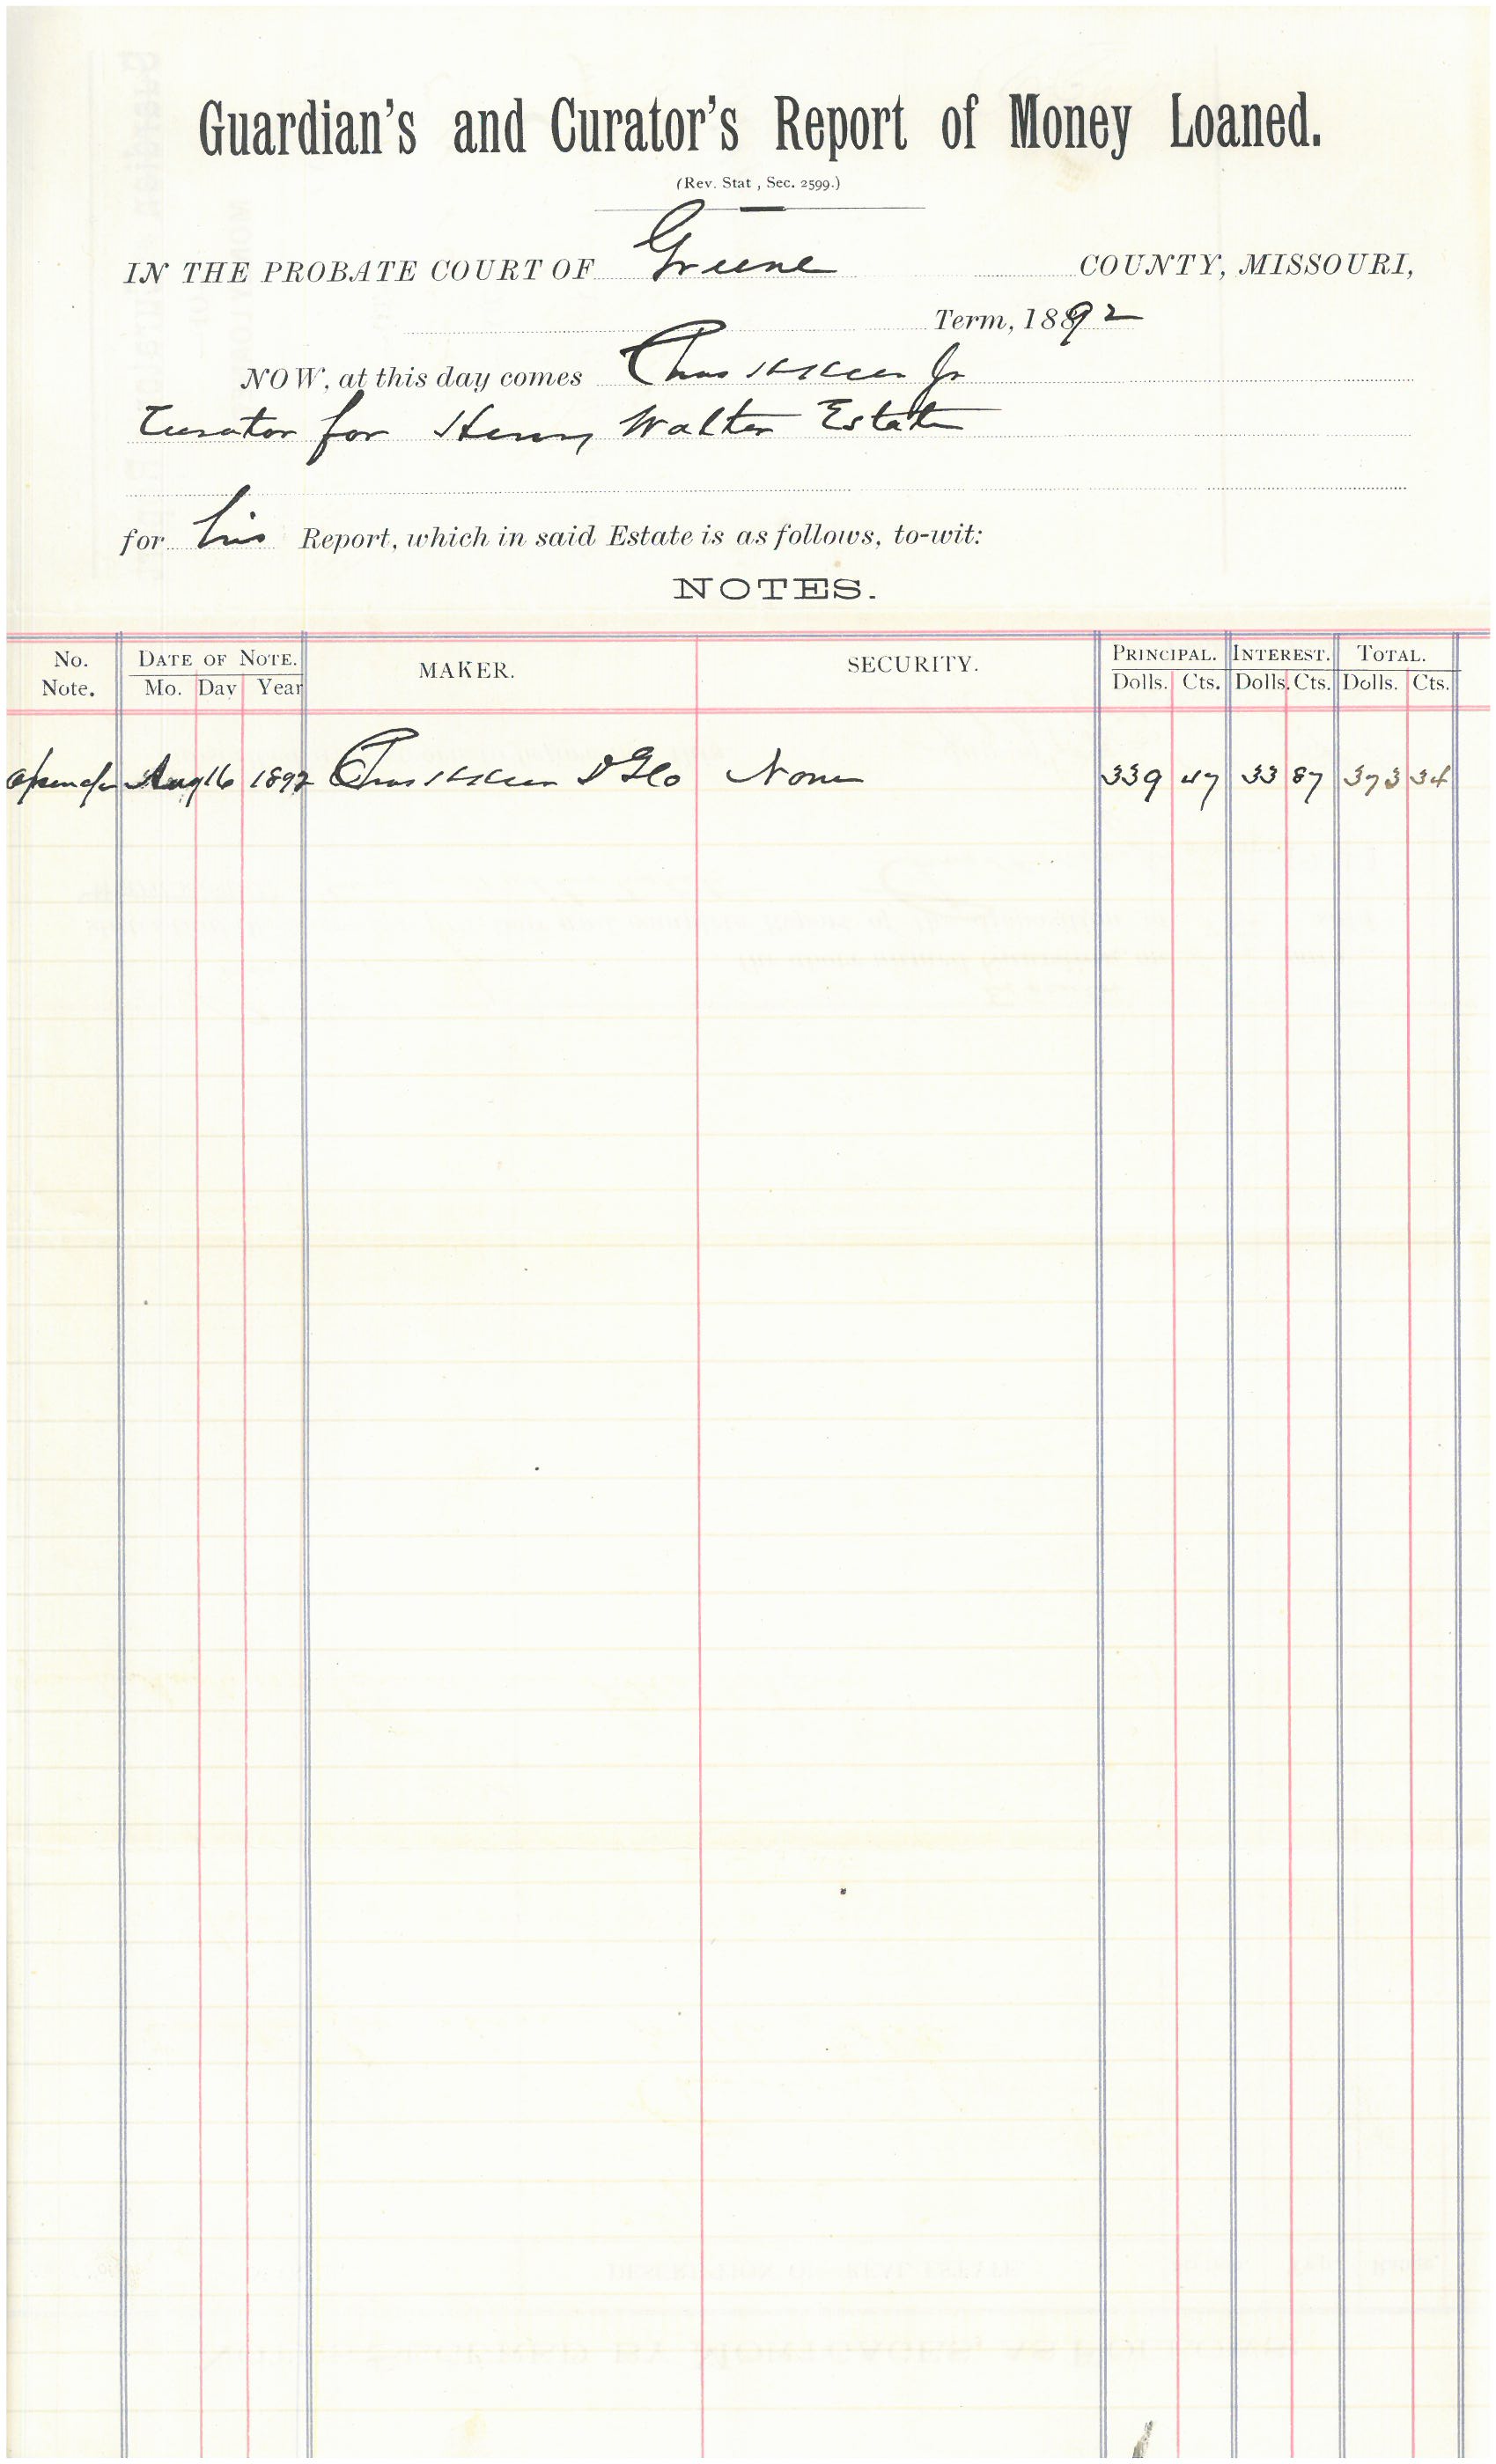 Guardian's and Curator's Report of Money Loaned.
(Rev. Stat , Sec. 2599.)
IN THE PROBATE COURT OF Greene COUNTY, MISSOURI,
Term, 1892
NOW, at this day comes Chas Jr
Curator for Henry Walter Estate
for his Report, which in said Estate is as follows, to-wit:
NOTES.
No. Note. DATE OF NOTE. Mo. Day Year MAKER. SECURITY. PRINCIPAL. Dolls. Cts. INTEREST. Dolls. Cts. TOTAL. Dolls. Cts.
Aug 16 1892 Chas None 339 47 33 87 373 34